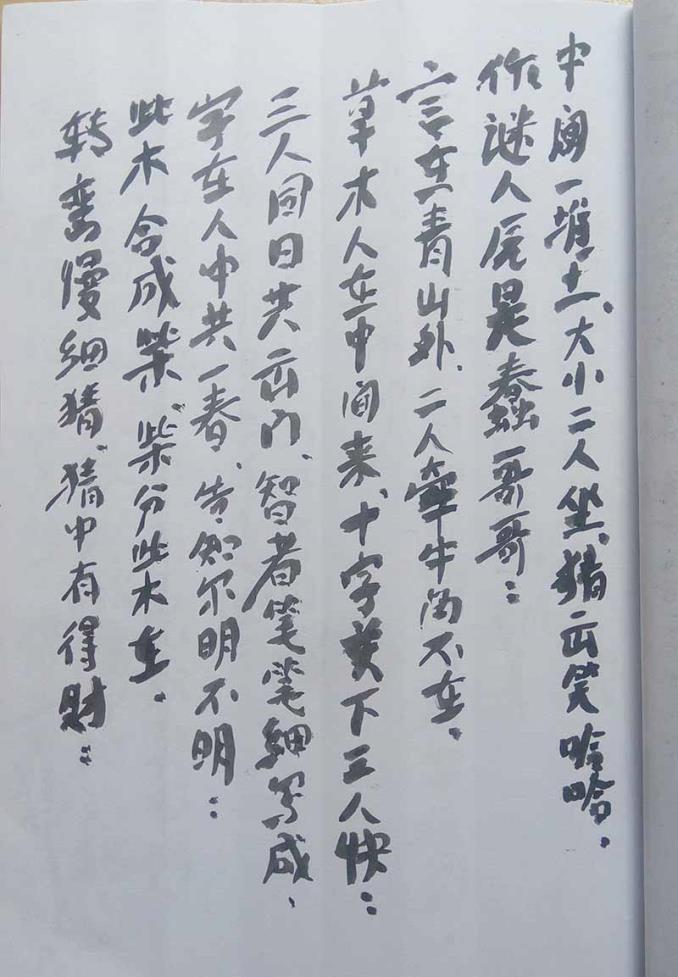 中间一堆土、大小二人坐、猜出笑哈哈。
作谜人是蠢哥哥：
言在青山外、二人牵牛角不在、
草木人在中间来、十字头下三人快：
三人同日共出门、智者笔笔细写成、
字在人中共一春、告知尔明不明：
此木合成柴、柴分此木在、
转弯慢细猜、猜中有得财：